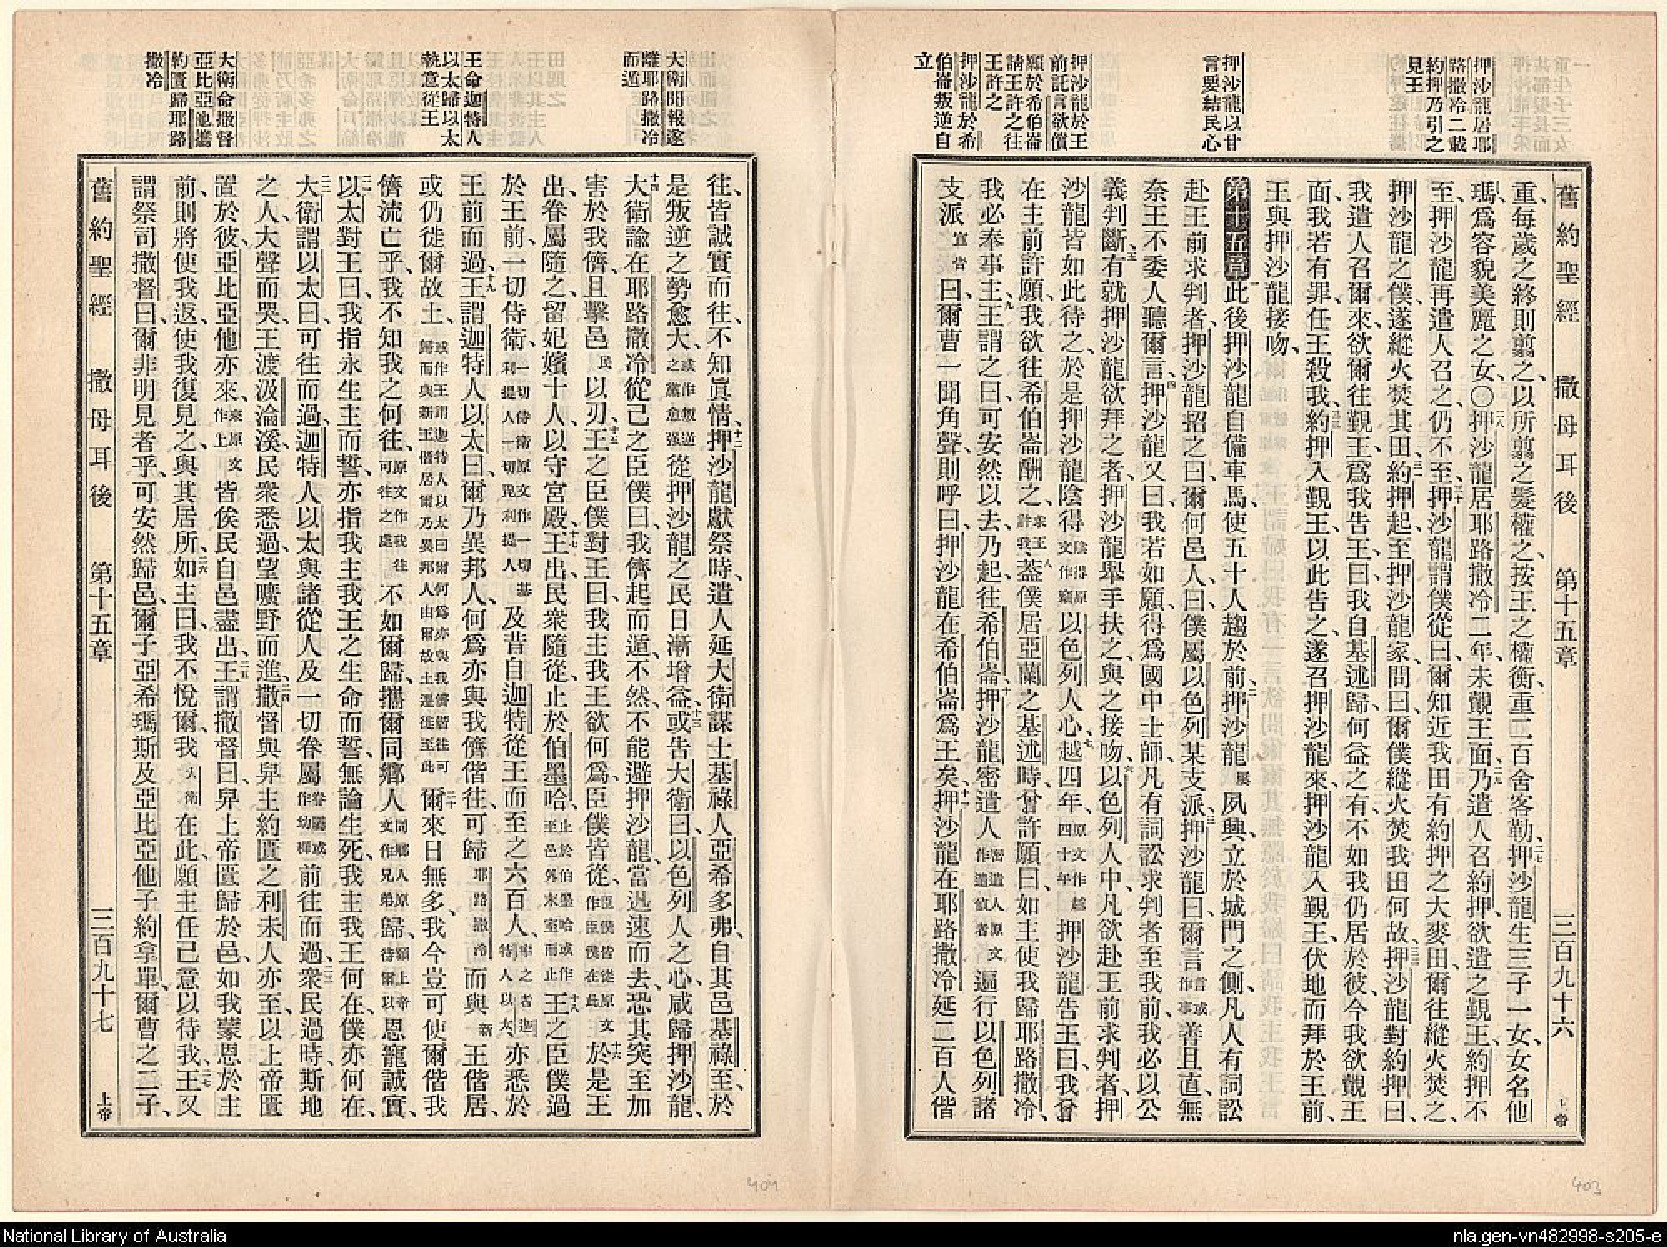 舊約聖經 撒母耳後 第十五章 三百九十六 上帝
押沙龍居耶
路撒冷二載
約押乃引之
見王
押沙龍以甘
言要結民心
押沙龍於王
前託言欲償
願於希伯崙
請王許之往
王許之
押沙龍於希
伯崙叛逆自
立
重、每歲之終則翦之、以所翦之髮權之、按王之權衡、重二百舍客勒、二七押沙龍生三子一女、女名他
瑪、爲容貌美麗之女、〇二八押沙龍居耶路撒冷二年、未覲王面、二九乃遣人召約押、欲遣之覲王、約押不
至、押沙龍再遣人召之、仍不至、三十押沙龍謂僕從曰、爾知近我田有約押之大麥田、爾往縱火焚之、
押沙龍之僕遂縱火焚其田、三一約押起、至押沙龍家、問曰、爾僕縱火焚我田何故、三二押沙龍對約押曰、
我遣人召爾來、欲爾往覲王、爲我告王曰、我自基述歸何益之有、不如我仍居於彼、今我欲覲王
面、我若有罪、任王殺我、三三約押入覲王、以此告之、遂召押沙龍來、押沙龍入覲王、伏地而拜於王前、
王與押沙龍接吻、
第十五章 一此後押沙龍自備車馬、使五十人趨於前、二押沙龍屢夙興、立於城門之側、凡人有詞訟
赴王前求判者、押沙龍招之曰、爾何邑人、曰、僕屬以色列某支派、三押沙龍曰、爾言言或作事善且直、無
奈王不委人聽爾言、四押沙龍又曰、我若如願、得爲國中士師、凡有詞訟求判者至我前、我必以公
義判斷、五有就押沙龍欲拜之者、押沙龍舉手扶之、與之接吻、六以色列人中、凡欲赴王前求判者、押
沙龍皆如此待之、於是押沙龍陰得陰得原文作竊以色列人心、七越四年、四年原文作越四十年押沙龍告王曰、我曾
在主前許願、我欲往希伯崙酬之、求王許我八蓋僕居亞蘭之基述時、曾許願曰、如主使我歸耶路撒冷、
我必奉事主、九王謂之曰、可安然以去、乃起、往希伯崙、十押沙龍密遣人密遣人原文作遣偵者遍行以色列諸
支派宣告曰、爾曹一聞角聲、則呼曰、押沙龍在希伯崙爲王矣、十一押沙龍在耶路撒冷延二百人偕
舊約聖經 撒母耳後 第十五章 三百九十七 上帝
大衛聞報遂
離耶路撒冷
而遁
王命迦特人
以太歸以太
執意從王
大衛命撒督
亞比亞他攜
約匱歸耶路
撒冷
往、皆誠實而往、不知眞情、十二押沙龍獻祭時、遣人延大衛謀士基祿人亞希多弗、自其邑基祿至、於
是叛逆之勢愈大、或作叛逆之黨愈强從押沙龍之民日漸增益、十三或告大衛曰、以色列人之心咸歸押沙龍、
十四大衛諭在耶路撒冷從己之臣僕曰、我儕起而遁、不然、不能避押沙龍、當迅速而去、恐其突至加
害於我儕、且擊邑民以刃、十五王之臣僕對王曰、我主我王欲何爲、臣僕皆從、臣僕皆從原文作臣僕在此十六於是王
出、眷屬隨之、留妃嬪十人以守宮殿、十七王出、民衆隨從、止於伯墨哈、止於伯墨哈或作至邑外末室而止十八王之臣僕過
於王前、一切侍衛、一切侍衛原文作一切基利提人一切毘利提人及昔自迦特從王而至之六百人、卽之者迦特人以太亦悉於
王前而過、十九王謂迦特人以太曰、爾乃異邦人、何爲亦與我儕偕往、可歸耶路撒冷而與新王偕居、
或仍徙爾故土、或作王謂迦特人以太曰爾何爲亦與我儕偕往可歸而與新王偕居爾乃異邦人由爾故土遷徙至此二十爾來日無多、我今豈可使爾偕我
儕流亡乎、我不知我之何往、原文作我往可往之處不如爾歸、攜爾同鄉人同鄉人原文作兄弟歸、願上帝待爾以恩寵誠實、
二一以太對王曰、我指永生主而誓、亦指我主我王之生命而誓、無論生死、我主我王何在、僕亦何在、
二二大衛謂以太曰、可往而過、迦特人以太與諸從人及一切眷屬眷屬或作幼穉前往而過、二三衆民過時、斯地
之人大聲而哭、王渡汲淪溪、民衆悉過、望曠野而進、二四撒督與舁主約匱之利未人亦至、以上帝匱
置於彼、亞比亞他亦來、來原文作上皆俟民自邑盡出、二五王謂撒督曰、舁上帝匱歸於邑、如我蒙恩於主
前、則將使我返、使我復見之、與其居所、二六如主曰、我不悅爾、我大衛在此、願主任己意以待我、二七王又
謂祭司撒督曰、爾非明見者乎、可安然歸邑、爾子亞希瑪斯、及亞比亞他子約拿單、爾曹之二子、
404
403
National Library of Australia
nla.gen-vn482998-s205-e